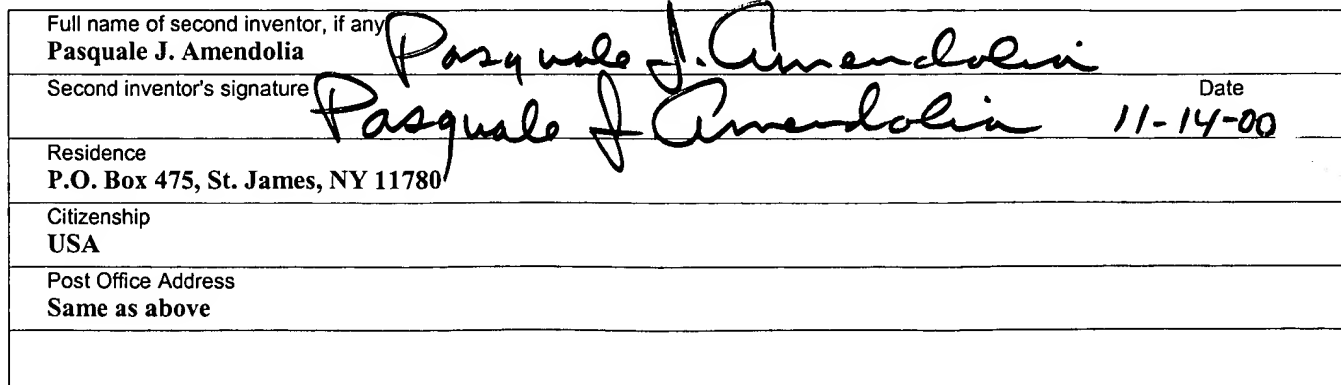 Full name of second inventor, if any
Pasquale J. Amendolia Pasquale J. Amendolia
Second inventor's signature Date
Pasquale J Amendolia 11-14-00
Residence
P.O. Box 475, St. James, NY 11780
Citizenship
USA
Post Office Address
Same as above